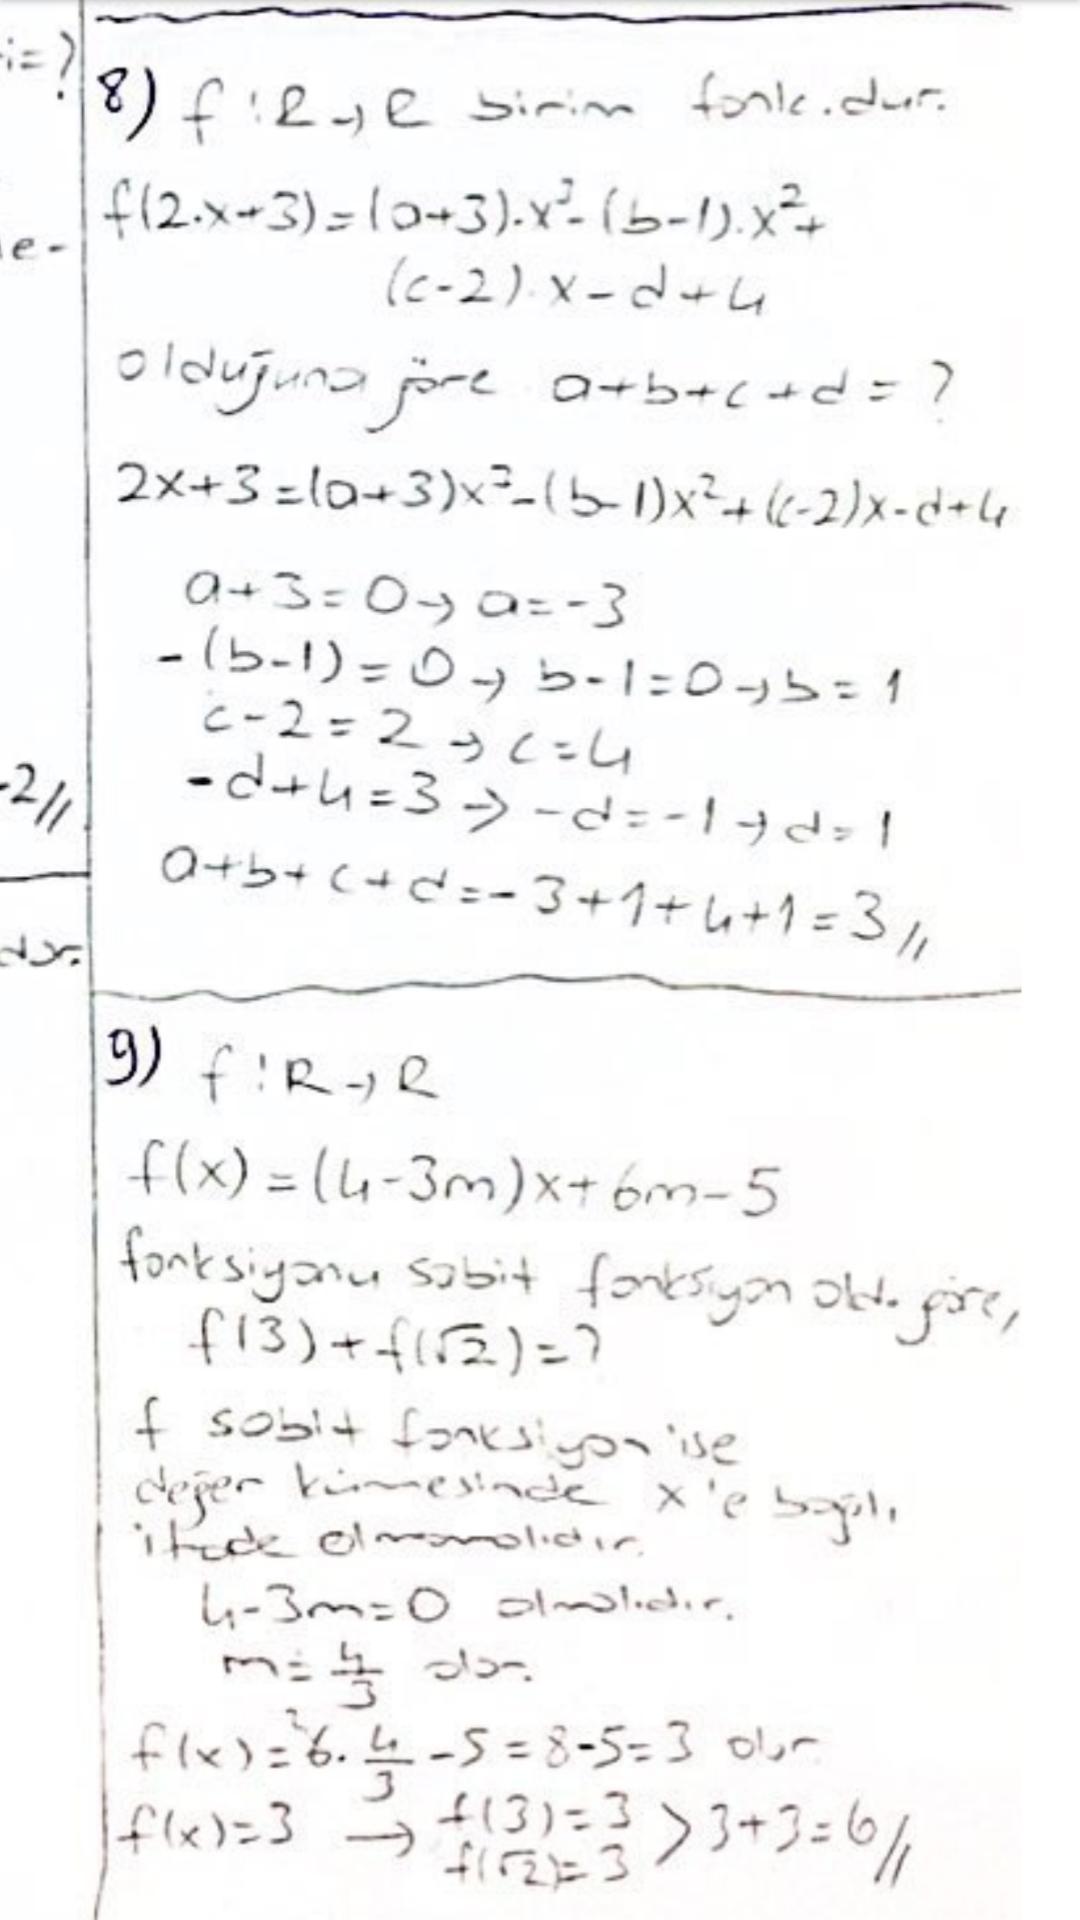 i=?
8) f:R→R birim fonk.dur.
f(2.x+3)=(a+3).x³-(b-1).x²+
(c-2).x-d+4
olduğuna göre a+b+c+d=?
2x+3=(a+3)x³-(b-1)x²+(c-2)x-d+4
a+3=0→a=-3
-(b-1)=0→b-1=0→b=1
c-2=2→c=4
-d+4=3→-d=-1→d=1
a+b+c+d=-3+1+4+1=3//
e-
-2//
dır.
9) f:R→R
f(x)=(4-3m)x+6m-5
fonksiyonu sabit fonksiyon old. göre,
f(3)+f(√2)=?
f sabit fonksiyon'ise
değer kümesinde x'e bağlı
ifade olmamalıdır.
4-3m=0 olmalıdır.
m=4/3 olur.
f(x)=²6.4/3-5=8-5=3 olur
f(x)=3 → f(3)=3 > 3+3=6//
f(√2)=3